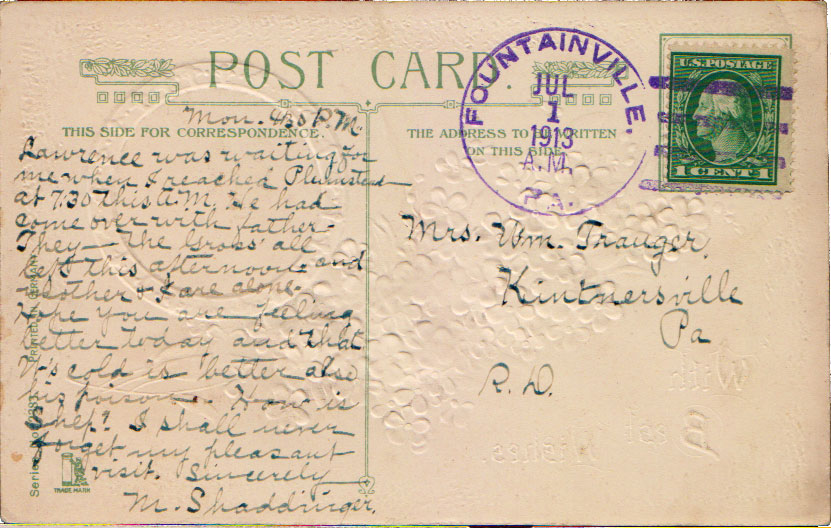 POST CARD.
FOUNTAINVILLE.
JUL
1
1913
A.M.
PA.
U.S. POSTAGE
1 CENT 1
THIS SIDE FOR CORRESPONDENCE.
THE ADDRESS TO BE WRITTEN
ON THIS SIDE
Mon. 4:30 P.M.
Lawrence was waiting for
me when I reached Plumstead
at 7:30 this A.M. He had
come over with father.
They — the Gross' all
left this afternoon and
Mother & I are alone.
Hope you are feeling
better today and that
W's cold is better also
his poison. How is
I shall never
forget my pleasant
visit. Sincerely
M. Shaddinger.
Mrs. Wm. Trauger,
Kintnersville
Pa
R. D.
PRINTED IN GERMANY
Series No.
TRADE MARK
With
Best
Wishes.